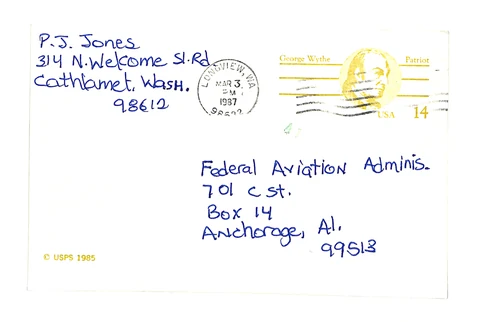 P.J. Jones
314 N. Welcome Sl. Rd.
Cathlamet, Wash.
98612
LONGVIEW, WA
MAR 3
PM
1987
George Wythe
Patriot
USA 14
Federal Aviation Adminis.
701 C St.
Box 14
Anchorage, Al.
99513
© USPS 1985